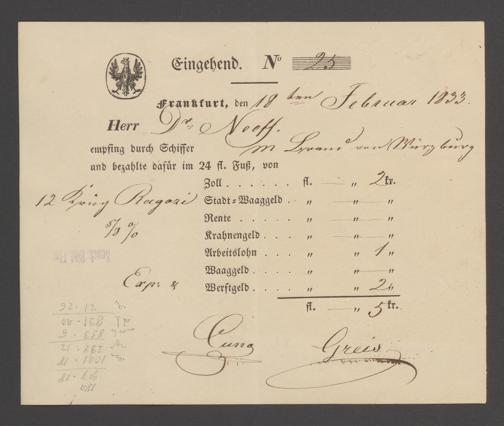 Eingehend. No 25
Frankfurt, den 18ten Februar 1833.
Herr Dr. Neeff.
empfing durch Schiffer von Würzburg
und bezahlte dafür im 24 fl. Fuß, von
Zoll . . . . . . fl. — „ 2 kr.
12 Krüg Ragozi Stadt-Waaggeld . „ — „ — „
5/8 % Rente . . . . . „ — „ — „
Krahnengeld . . . „ — „ — „
Arbeitslohn . . . „ — „ 1 „
Waaggeld . . . . „ — „ — „
Werftgeld . . . . „ — „ 2 „
fl. — „ 5 kr.
Greis